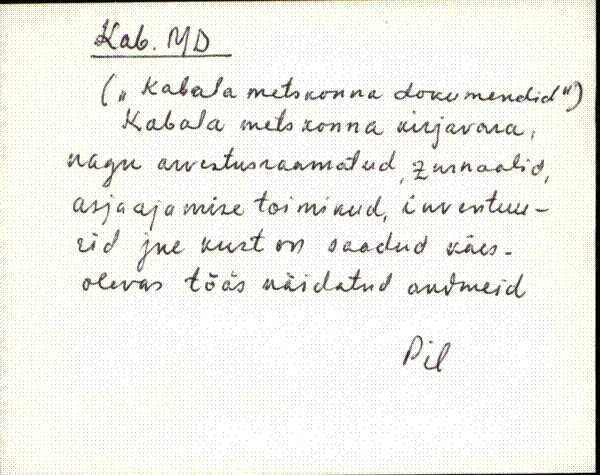 Kab. MD
(„Kabala metskonna dokumendid")
Kabala metskonna kirjavara,
nagu arvestusraamatud, žurnaalid,
asjaajamise toimikud, inventuu-
rid jne kust on saadud käes-
olevas töös näidatud andmeid
Pil